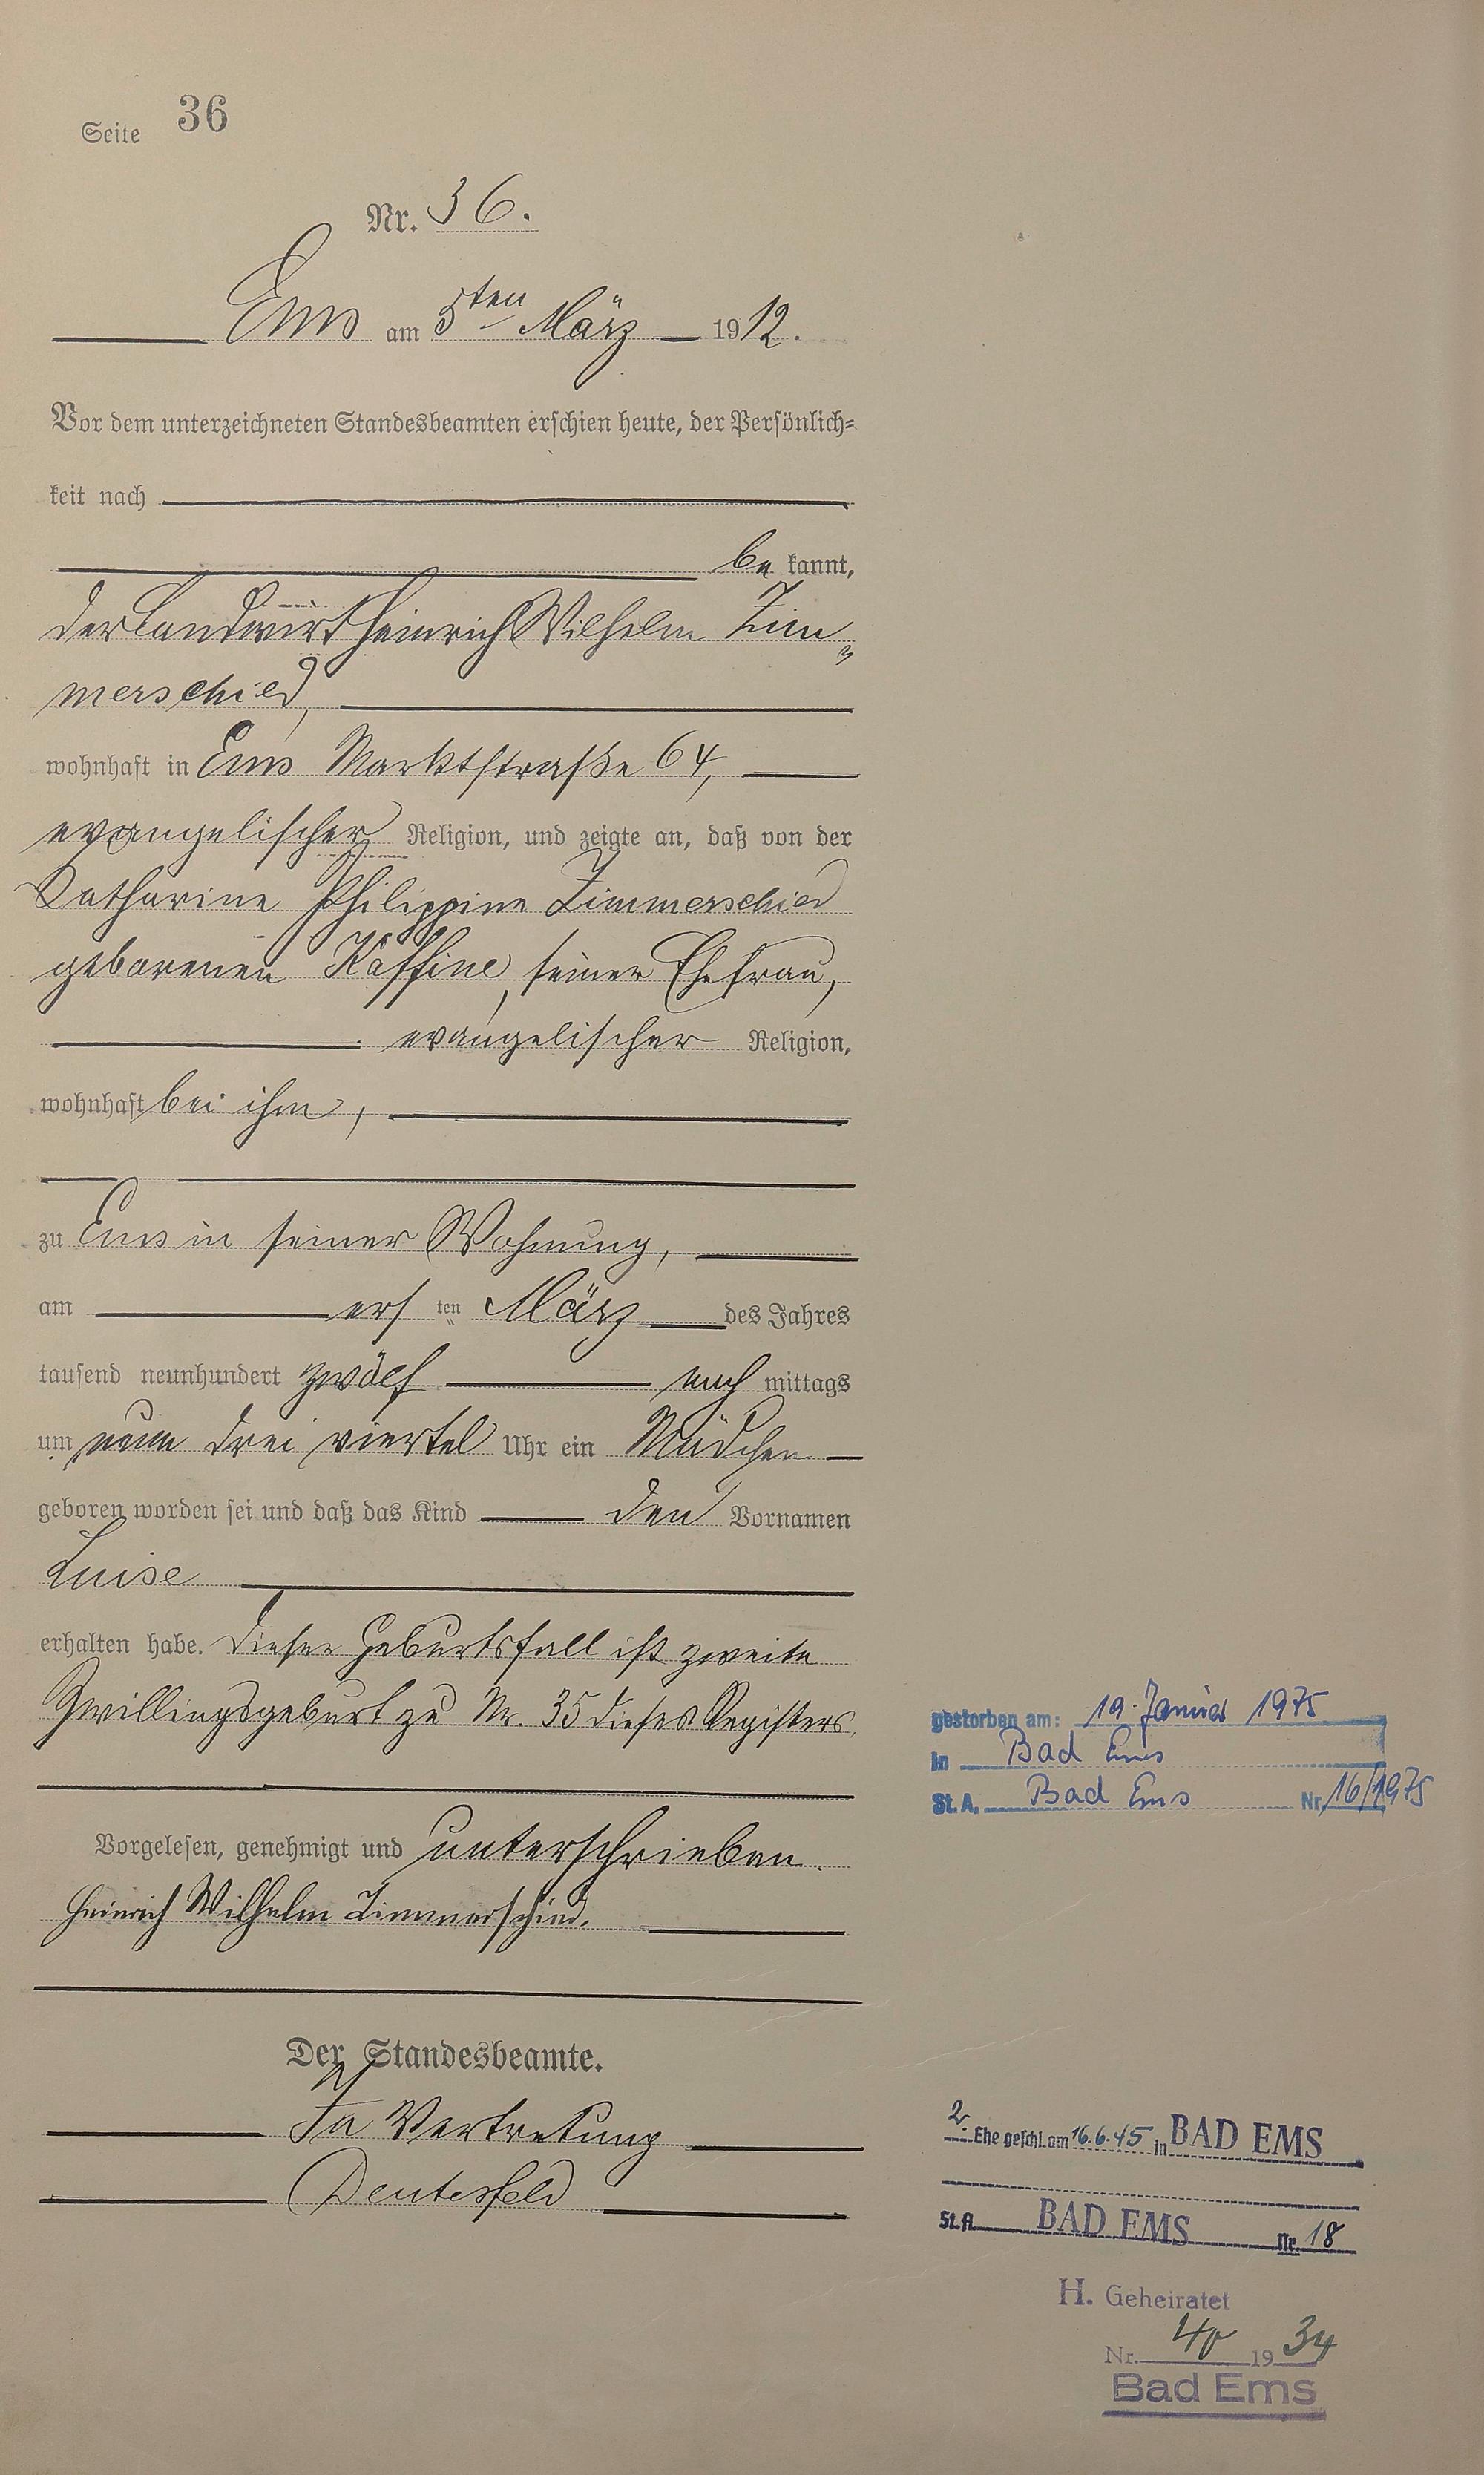 Seite 36
Nr. 36.
Ems am 5ten März 1912.
Vor dem unterzeichneten Standesbeamten erschien heute, der Persönlich=
keit nach
be kannt,
der Landwirt Heinrich Wilhelm Zim=
merschied,
wohnhaft in Ems Marktstraße 64,
evangelischer Religion, und zeigte an, daß von der
Katharine Philippine Zimmerschied
geborenen Kaffine, seiner Ehefrau,
evangelischer Religion,
wohnhaft bei ihm,
zu Ems in seiner Wohnung,
am ersten März des Jahres
tausend neunhundert zwölf nach mittags
um neun drei viertel Uhr ein Mädchen
geboren worden sei und daß das Kind den Vornamen
Luise
erhalten habe. Dieser Geburtsfall ist zweite
Zwillingsgeburt zu Nr. 35 dieses Registers.
Vorgelesen, genehmigt und unterschrieben.
Heinrich Wilhelm Zimmerschied.
Der Standesbeamte.
In Vertretung
Deutesfeld
gestorben am: 19. Januar 1975
in Bad Ems
St. A. Bad Ems Nr. 16/1975
2. Ehe geschl. am 16.6.45 in BAD EMS
St.A. BAD EMS Nr. 18
H. Geheiratet
Nr. 40 1934
Bad Ems